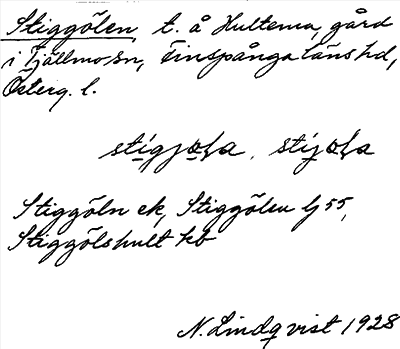 Stiggölen, t. å Hultema, gård
i Tjällmo sn, Finspånga läns hd,
Österg. l.
stigjola, stijola
Stiggöln ek, Stiggölen lj 55,
Stiggölshult kb
N. Lindqvist 1928